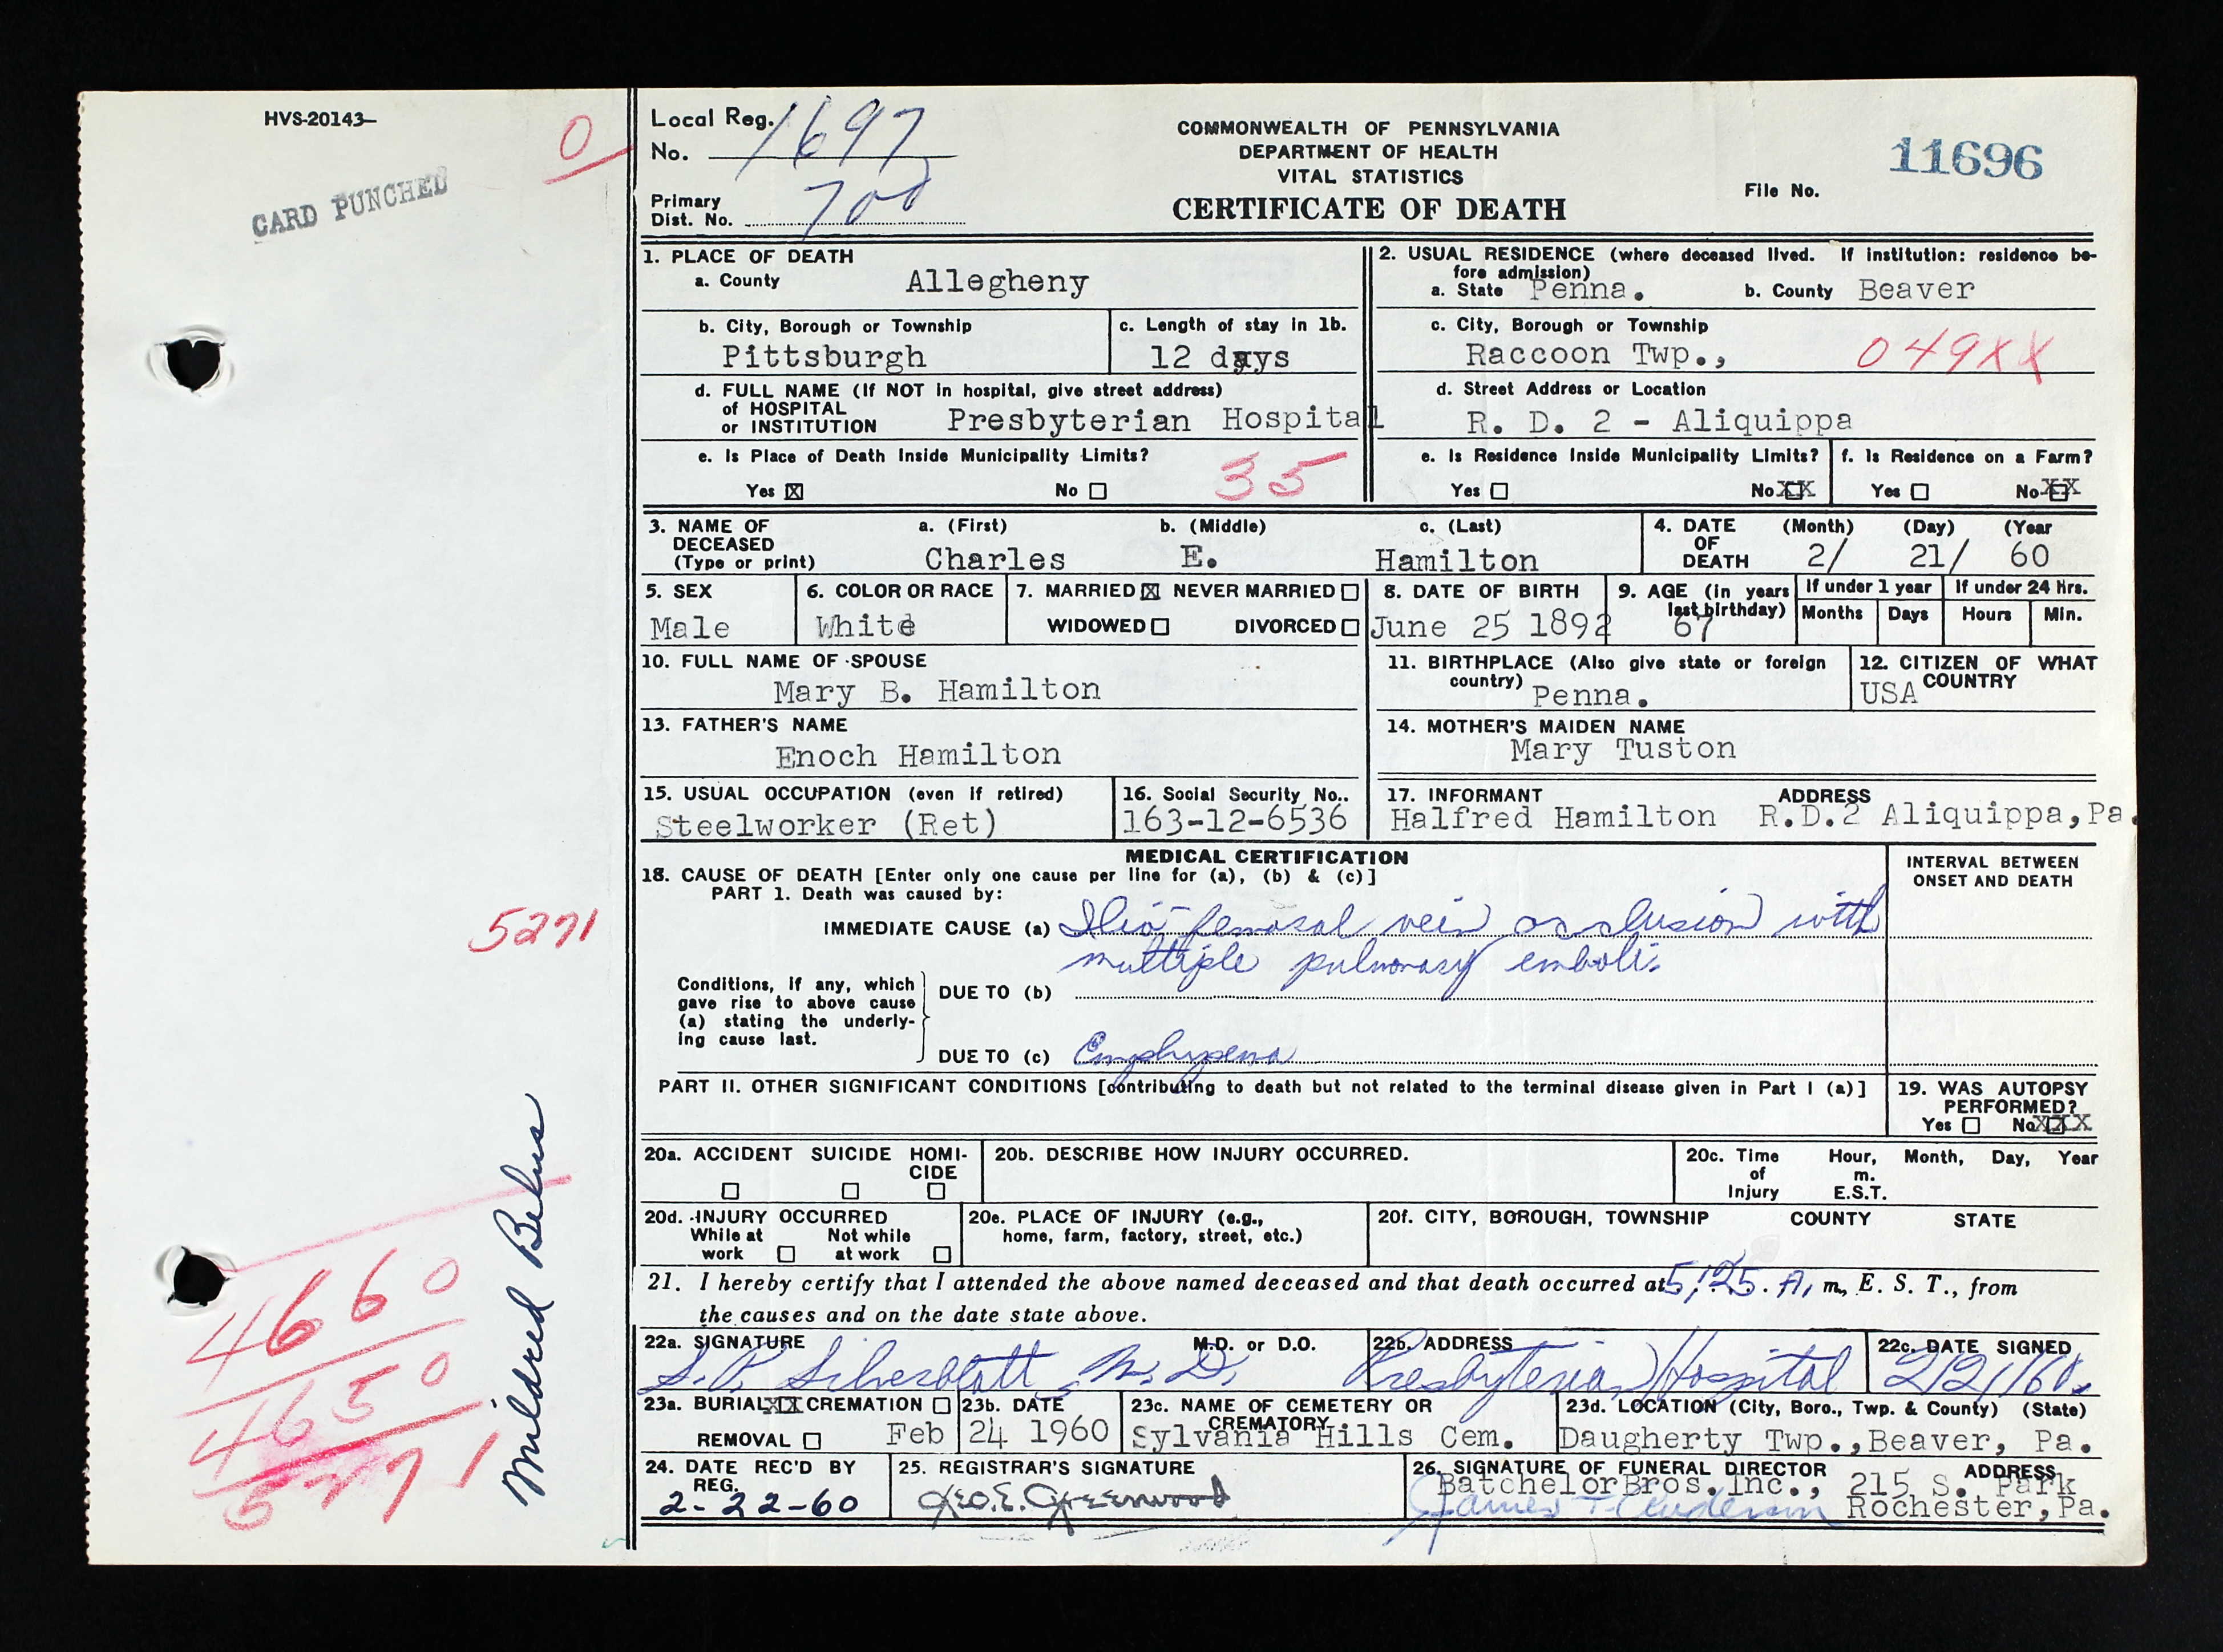 HVS-20143-
0
CARD PUNCHED
Local Reg. No. 1697
Primary Dist. No. 700
COMMONWEALTH OF PENNSYLVANIA
DEPARTMENT OF HEALTH
VITAL STATISTICS
CERTIFICATE OF DEATH
File No. 11696
1. PLACE OF DEATH
a. County Allegheny
b. City, Borough or Township
Pittsburgh
c. Length of stay in 1b.
12 days
d. FULL NAME (If NOT in hospital, give street address)
of HOSPITAL
or INSTITUTION Presbyterian Hospital
e. Is Place of Death Inside Municipality Limits?
Yes ☒ No ☐ 35
2. USUAL RESIDENCE (where deceased lived. If institution: residence be-
fore admission)
a. State Penna. b. County Beaver
c. City, Borough or Township
Raccoon Twp., 049XX
d. Street Address or Location
R. D. 2 - Aliquippa
e. Is Residence Inside Municipality Limits?
Yes ☐ No XX
f. Is Residence on a Farm?
Yes ☐ No XX
3. NAME OF DECEASED (Type or print)
a. (First) b. (Middle) c. (Last)
Charles E. Hamilton
4. DATE OF DEATH (Month) (Day) (Year
2/ 21/ 60
5. SEX
Male
6. COLOR OR RACE
White
7. MARRIED ☒ NEVER MARRIED ☐
WIDOWED ☐ DIVORCED ☐
8. DATE OF BIRTH
June 25 1892
9. AGE (in years
last birthday)
67
If under 1 year
Months Days
If under 24 hrs.
Hours Min.
10. FULL NAME OF SPOUSE
Mary B. Hamilton
11. BIRTHPLACE (Also give state or foreign
country) Penna.
12. CITIZEN OF WHAT
COUNTRY
USA
13. FATHER'S NAME
Enoch Hamilton
14. MOTHER'S MAIDEN NAME
Mary Tuston
15. USUAL OCCUPATION (even if retired)
Steelworker (Ret)
16. Social Security No..
163-12-6536
17. INFORMANT ADDRESS
Halfred Hamilton R.D.2 Aliquippa,Pa.
MEDICAL CERTIFICATION
18. CAUSE OF DEATH [Enter only one cause per line for (a), (b) & (c)]
PART 1. Death was caused by:
INTERVAL BETWEEN
ONSET AND DEATH
5271
IMMEDIATE CAUSE (a) Ilio-femoral vein occlusion with
multiple pulmonary emboli.
Conditions, if any, which
gave rise to above cause
(a) stating the underly-
ing cause last.
DUE TO (b)
DUE TO (c) Emphysema
PART II. OTHER SIGNIFICANT CONDITIONS [contributing to death but not related to the terminal disease given in Part I (a)]
19. WAS AUTOPSY
PERFORMED?
Yes ☐ No XXX
20a. ACCIDENT SUICIDE HOMI-
CIDE
☐ ☐ ☐
20b. DESCRIBE HOW INJURY OCCURRED.
20c. Time Hour, Month, Day, Year
of m.
Injury E.S.T.
20d. INJURY OCCURRED
While at Not while
work ☐ at work ☐
20e. PLACE OF INJURY (e.g.,
home, farm, factory, street, etc.)
20f. CITY, BOROUGH, TOWNSHIP COUNTY STATE
21. I hereby certify that I attended the above named deceased and that death occurred at 5:25 A, m., E. S. T., from
the causes and on the date state above.
22a. SIGNATURE M.D. or D.O.
S.P. Silverblatt, M.D.
22b. ADDRESS
Presbyterian Hospital
22c. DATE SIGNED
2/21/60.
23a. BURIAL XX CREMATION ☐
REMOVAL ☐
23b. DATE
Feb 24 1960
23c. NAME OF CEMETERY OR
CREMATORY
Sylvania Hills Cem.
23d. LOCATION (City, Boro., Twp. & County) (State)
Daugherty Twp., Beaver, Pa.
24. DATE REC'D BY
REG.
2-22-60
25. REGISTRAR'S SIGNATURE
Geo. E. Greenwood
26. SIGNATURE OF FUNERAL DIRECTOR ADDRESS
Batchelor Bros. Inc., 215 S. Park
James Rochester, Pa.
Mildred
4660
4650
5271